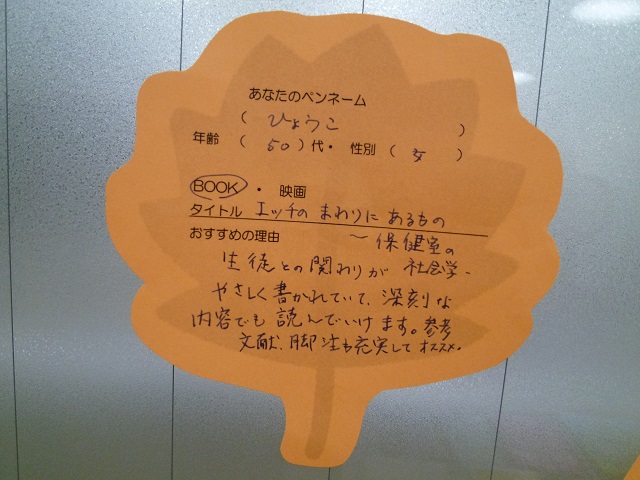 あなたのペンネーム
( ひょうこ )
年齢 ( 50 ) 代・ 性別 ( 女 )
BOOK ・ 映画
タイトル エッチの まわりに あるもの
おすすめの理由 〜保健室の
生徒との関わりが 社会学-
やさしく書かれていて、深刻な
内容でも 読んでいけます。参考
文献、脚注も充実して オススメ。